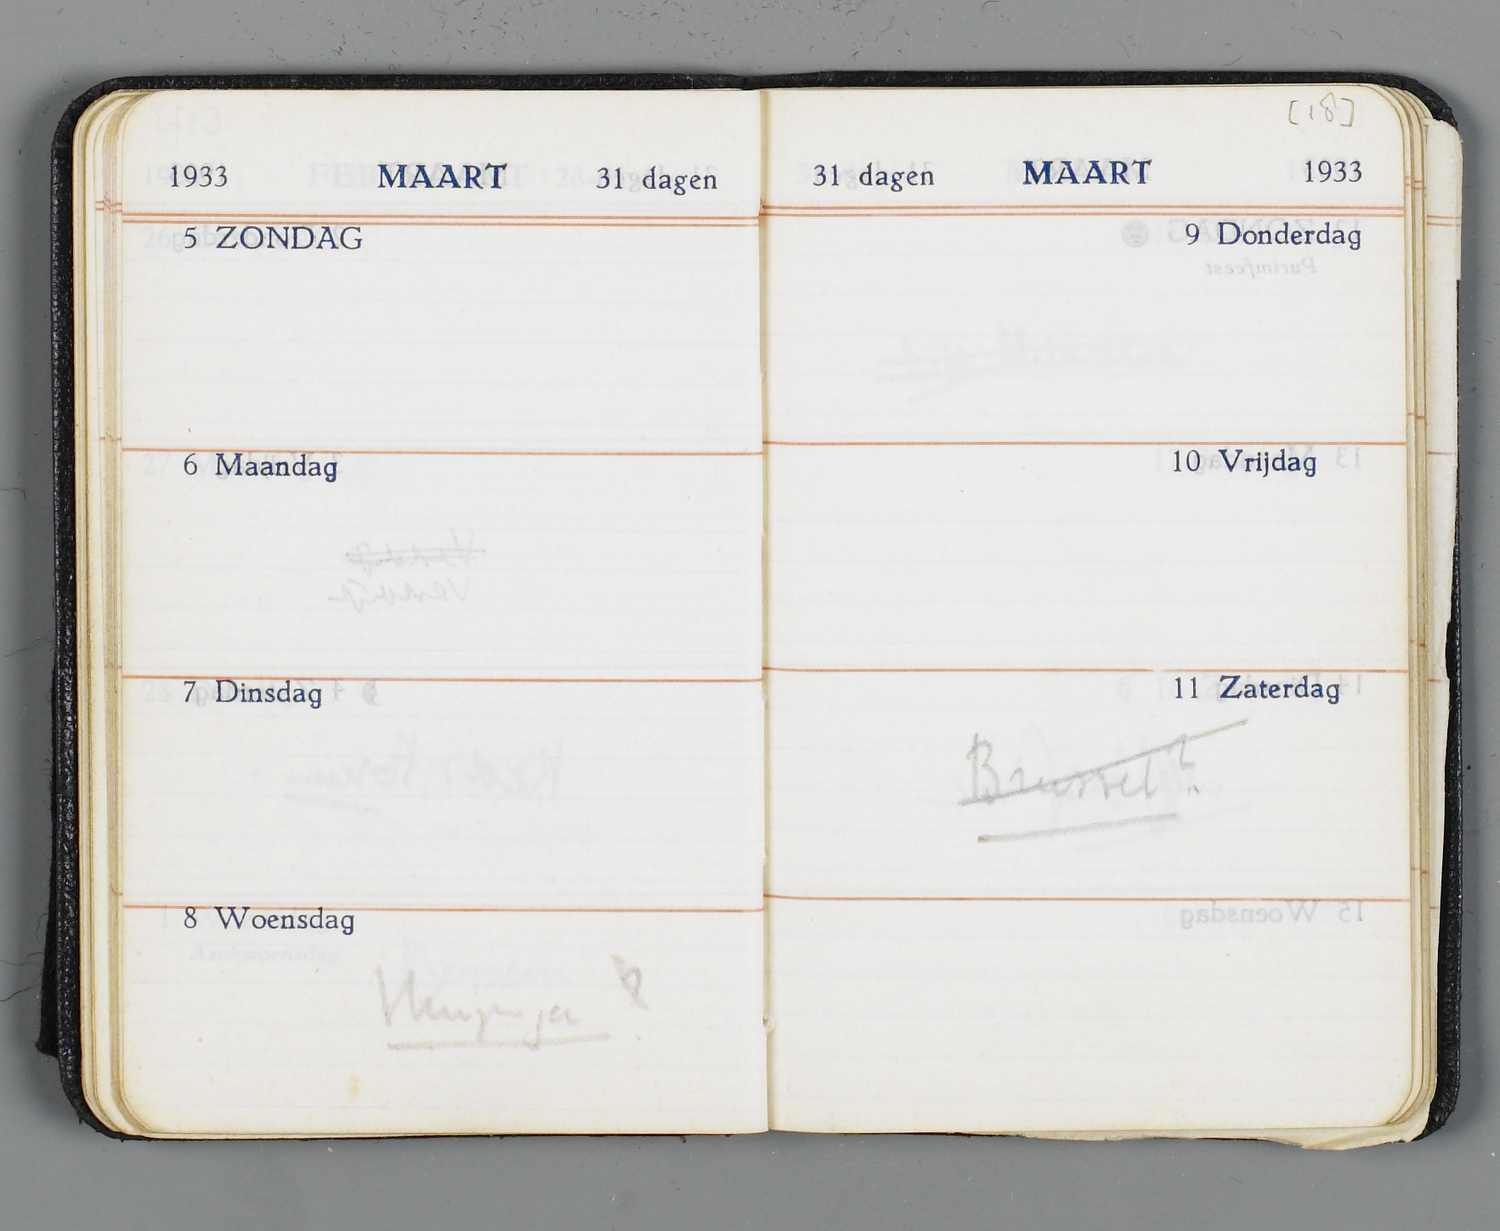 1933 MAART 31 dagen
5 ZONDAG
6 Maandag
7 Dinsdag
8 Woensdag
[18]
31 dagen MAART 1933
9 Donderdag
10 Vrijdag
11 Zaterdag
Brussel?